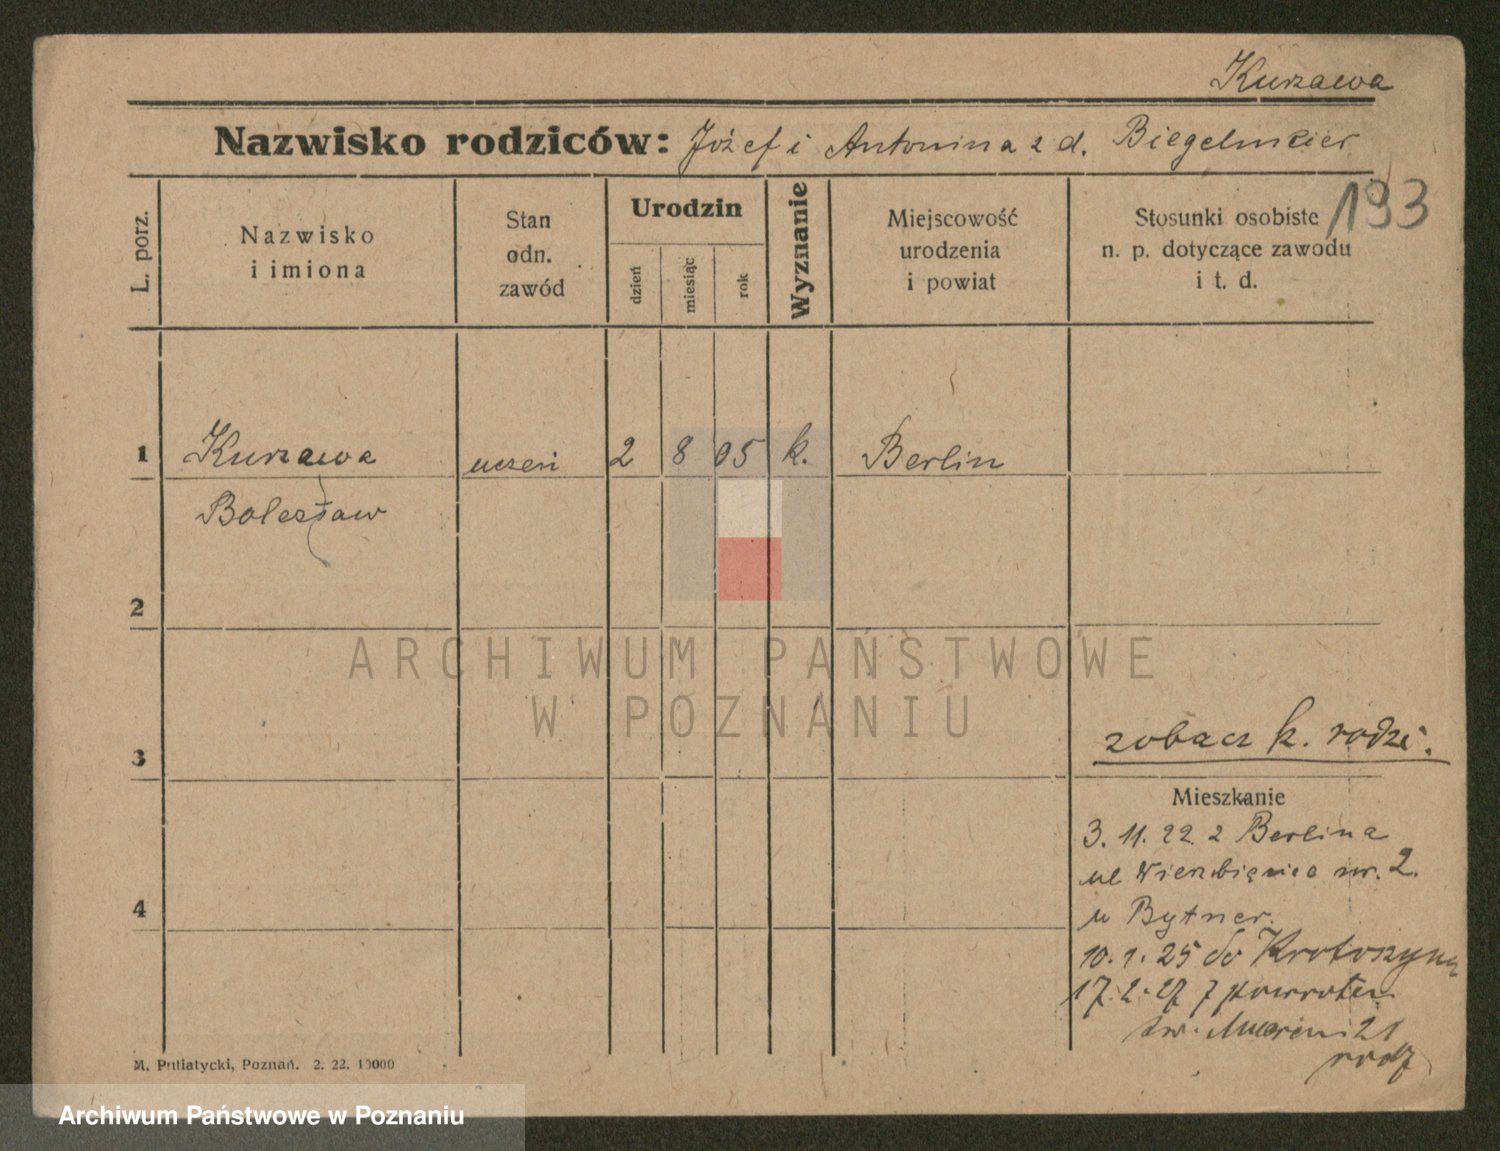 Kurzawa
Nazwisko rodziców: Józef i Antonina z d. Biegelmeier
193
L. porz.
Nazwisko i imiona
Stan odn. zawód
Urodzin
dzień
miesiąc
rok
Wyznanie
Miejscowość urodzenia i powiat
Stosunki osobiste n. p. dotyczące zawodu i t. d.
1 Kurzawa uczeń 2 8 05 k. Berlin
Bolesław
2
ARCHIWUM PAŃSTWOWE
W POZNANIU
3
zobacz k. rodzi.
Mieszkanie
3. 11. 22 z Berlina
ul Wierzbięcice nr. 2.
4
u Bytner.
10. 1. 25 do Krotoszyna
17. 2. 27 z powrotem
św. Marcin 21
rodz
M. Putiatycki, Poznań. 2. 22. 10000
Archiwum Państwowe w Poznaniu